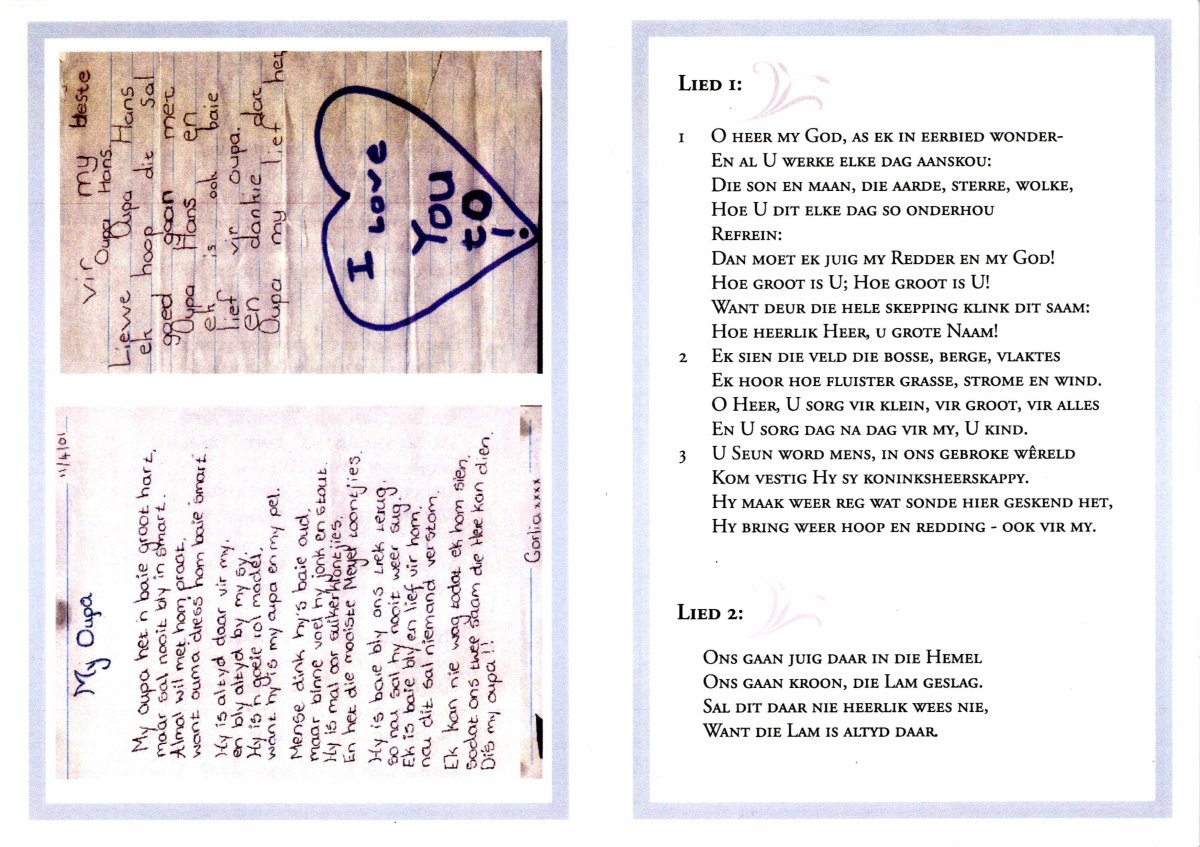 vir my beste
Oupa Hans.
Liewe Oupa Hans
ek hoop dit sal
goed gaan met
Oupa Hans en
ek is ook baie
lief vir oupa.
en dankie dat
Oupa my lief het
I LOVE
YOU
tO!
11/4/01
My Oupa
My oupa het 'n baie groot hart,
maar sal nooit bly in smart.
Almal wil met hom praat,
want ouma dress hom baie smart.
Hy is altyd daar vir my,
en bly altyd by my sy.
Hy is 'n goeie rol model,
want hy is my oupa en my pel.
Mense dink hy's baie oud,
maar binne voel hy jonk en stout.
Hy is mal oor suikerklontjies,
En het die mooiste Meyer toontjies.
Hy is baie bly ons trek terug,
so nou sal hy nooit weer sug.
Ek is baie bly en lief vir hom,
nou dit sal niemand verstom.
Ek kan nie wag totdat ek hom sien,
sodat ons twee saam die Here kan dien.
Dis my oupa!!
Gorlia xxx
Lied 1:
1 O heer my God, as ek in eerbied wonder-
En al U werke elke dag aanskou:
Die son en maan, die aarde, sterre, wolke,
Hoe U dit elke dag so onderhou
Refrein:
Dan moet ek juig my Redder en my God!
Hoe groot is U; Hoe groot is U!
Want deur die hele skepping klink dit saam:
Hoe heerlik Heer, u grote Naam!
2 Ek sien die veld die bosse, berge, vlaktes
Ek hoor hoe fluister grasse, strome en wind.
O Heer, U sorg vir klein, vir groot, vir alles
En U sorg dag na dag vir my, U kind.
3 U Seun word mens, in ons gebroke wêreld
Kom vestig Hy sy koninksheerskappy.
Hy maak weer reg wat sonde hier geskend het,
Hy bring weer hoop en redding - ook vir my.
Lied 2:
Ons gaan juig daar in die Hemel
Ons gaan kroon, die Lam geslag.
Sal dit daar nie heerlik wees nie,
Want die Lam is altyd daar.